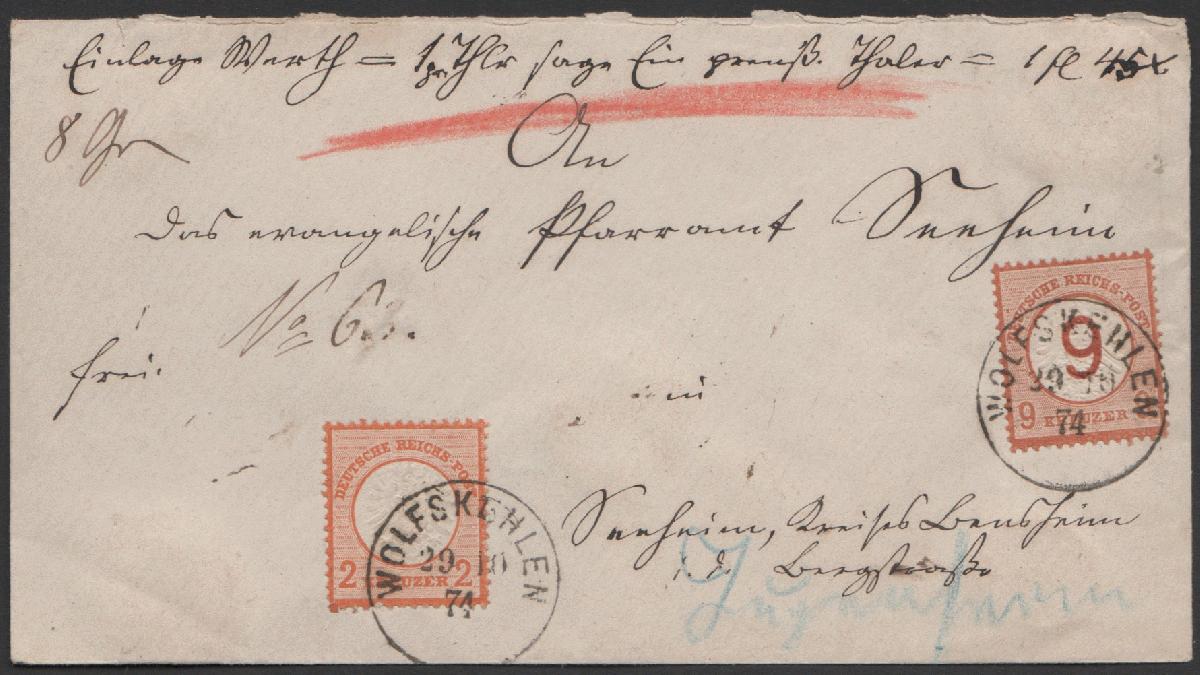 Einlage Werth = 1 pr Thlr sage Ein preuß. Thaler = 1 fl 45 x
8 Gr
An
Das evangelische Pfarramt Seeheim
No 63.
frei.
in
Seeheim, Kreises Bensheim
Bergstraße
Jugenheim
DEUTSCHE REICHS-POST
9
9 KREUZER
WOLFSKEHLEN
29 10
74
DEUTSCHE REICHS-POST
2 KREUZER 2
WOLFSKEHLEN
29 10
74